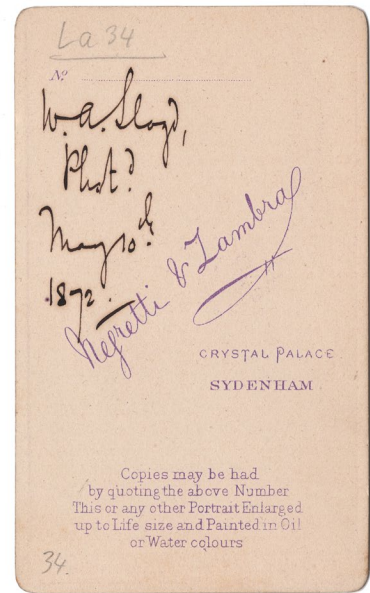 La 34
No
W. A. Lloyd,
Phot.d
May 10th
1872.
Negretti & Zambra
CRYSTAL PALACE
SYDENHAM
Copies may be had
by quoting the above Number
This or any other Portrait Enlarged
up to Life size and Painted in Oil
or Water colours
34.